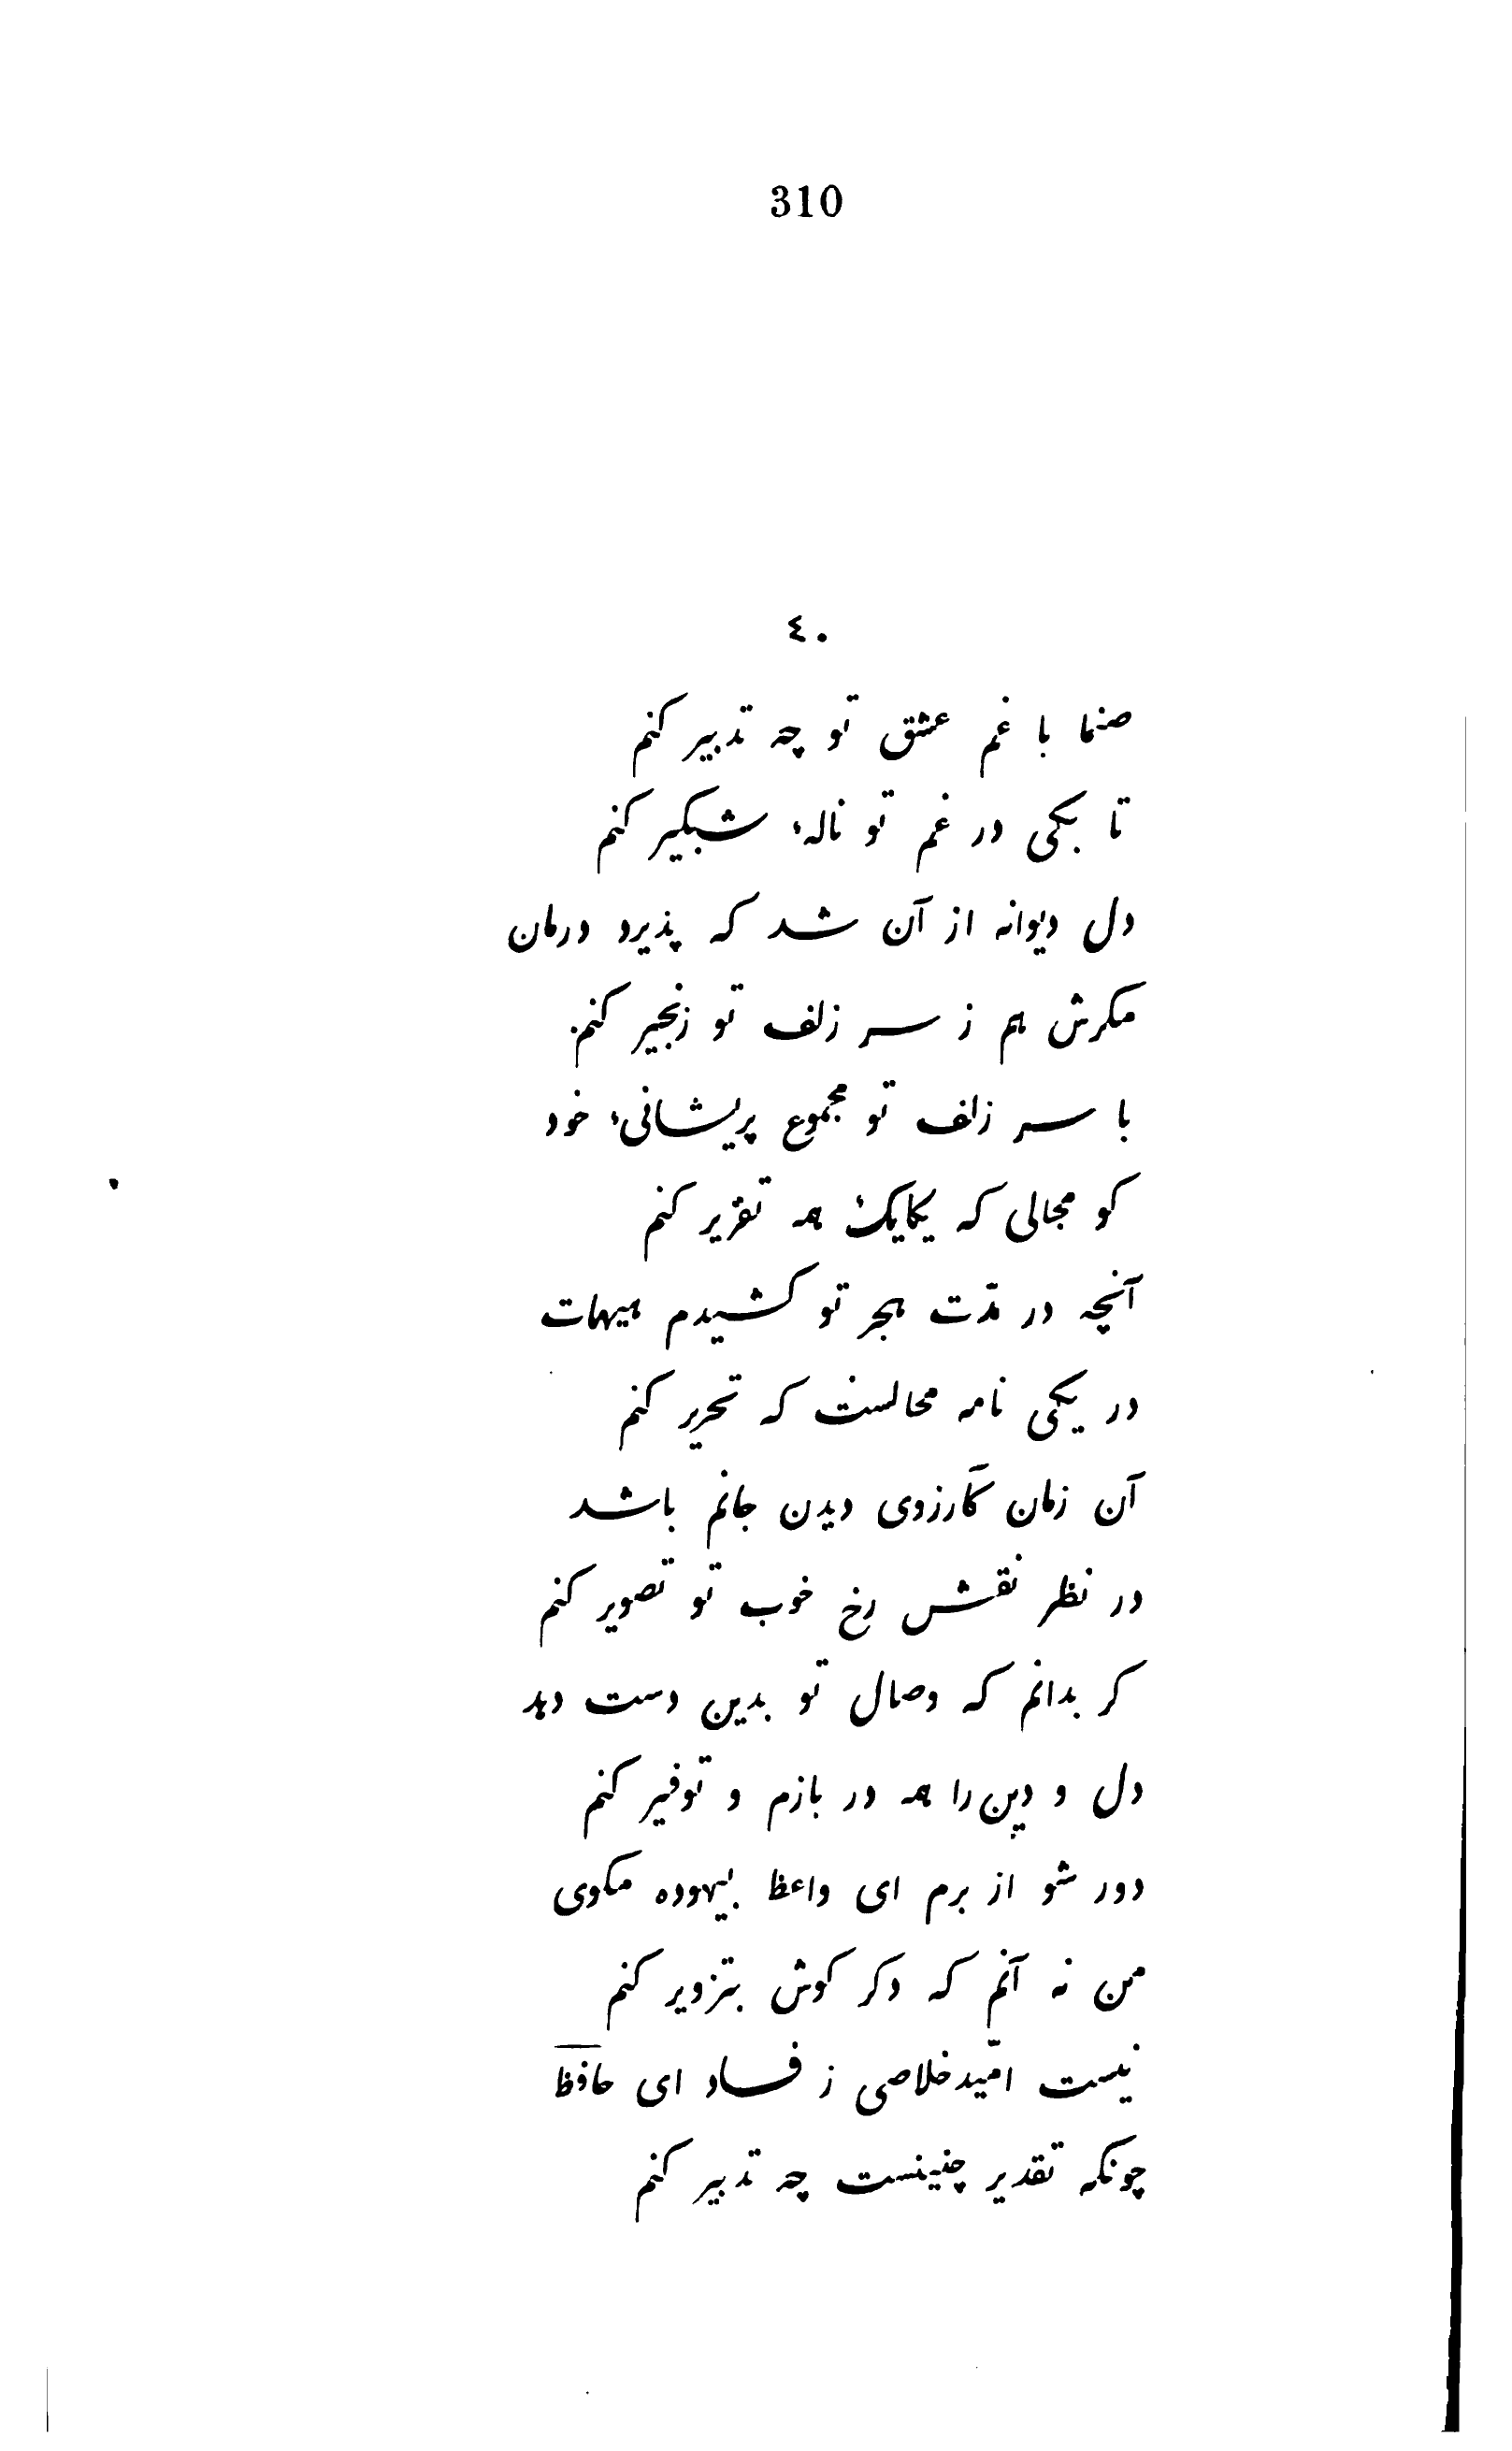 310
٤٠
صنما با غم عشق تو چه تدبیر کنم
تا بکی در غم تو نالهٔ شبکیر کنم
دل دیوانه از آن شد که پذیرد درمان
مکرش هم ز سر زلف تو زنجیر کنم
با سر زلف تو مجموع پریشانیٔ خود
کو مجالی که یکایک همه تقریر کنم
آنچه در مدّت هجر تو کشیدم هیهات
در یکی نامه محالست که تحریر کنم
آن زمان کآرزوی دیدن جانم باشد
در نظر نقش رخ خوب تو تصویر کنم
کر بدانم که وصال تو بدین دست دهد
دل و دین را همه در بازم و توفیر کنم
دور شو از برم ای واعظ بیهوده مکوی
من نه آنم که دکر کوش بتزویر کنم
نیست امّید خلاصی ز فساد ای حافظ
چونکه تقدیر چنینست چه تدبیر کنم